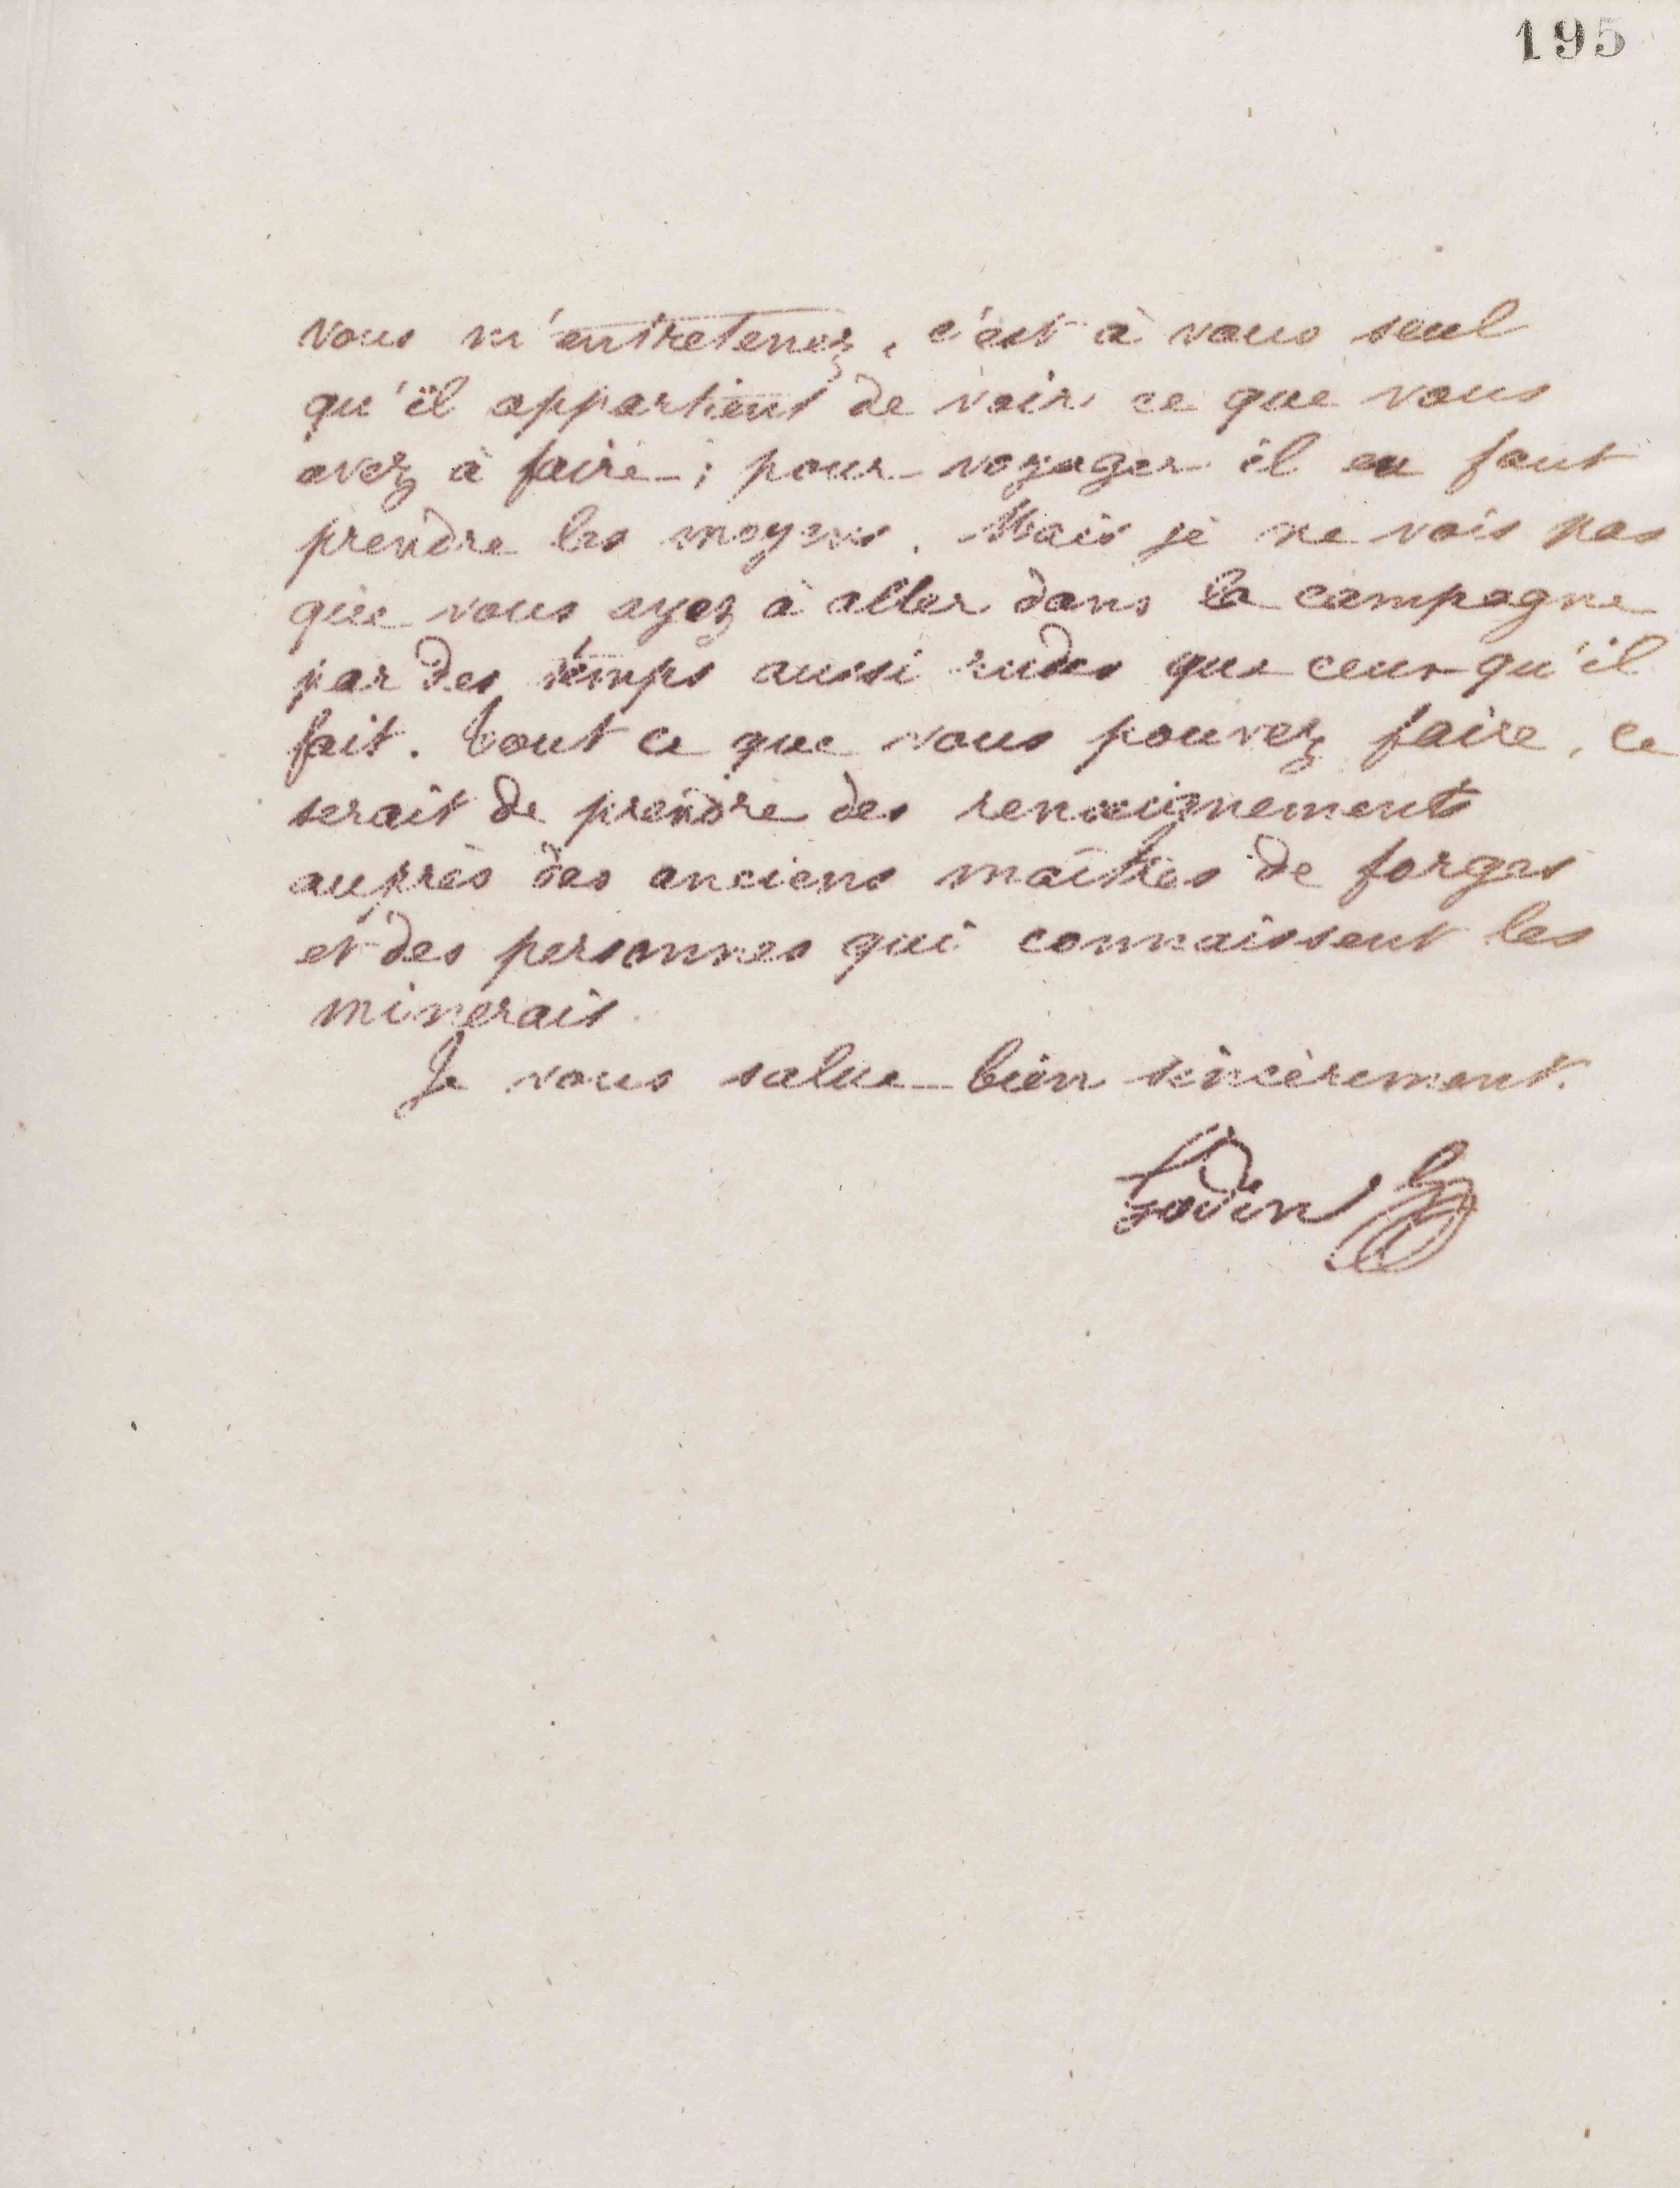 195
vous m'entretenez, c'est à vous seul
qu'il appartient de voir ce que vous
avez à faire ; pour voyager il en faut
prendre les moyens. Mais je ne vois pas
que vous ayez à aller dans la campagne
par des temps aussi rudes que ceux qu'il
fait. Tout ce que vous pouvez faire, ce
serait de prendre des renseignements
auprès des anciens maîtres de forges
et des personnes qui connaissent les
minerais.
Je vous salue bien sincèrement.
Godin